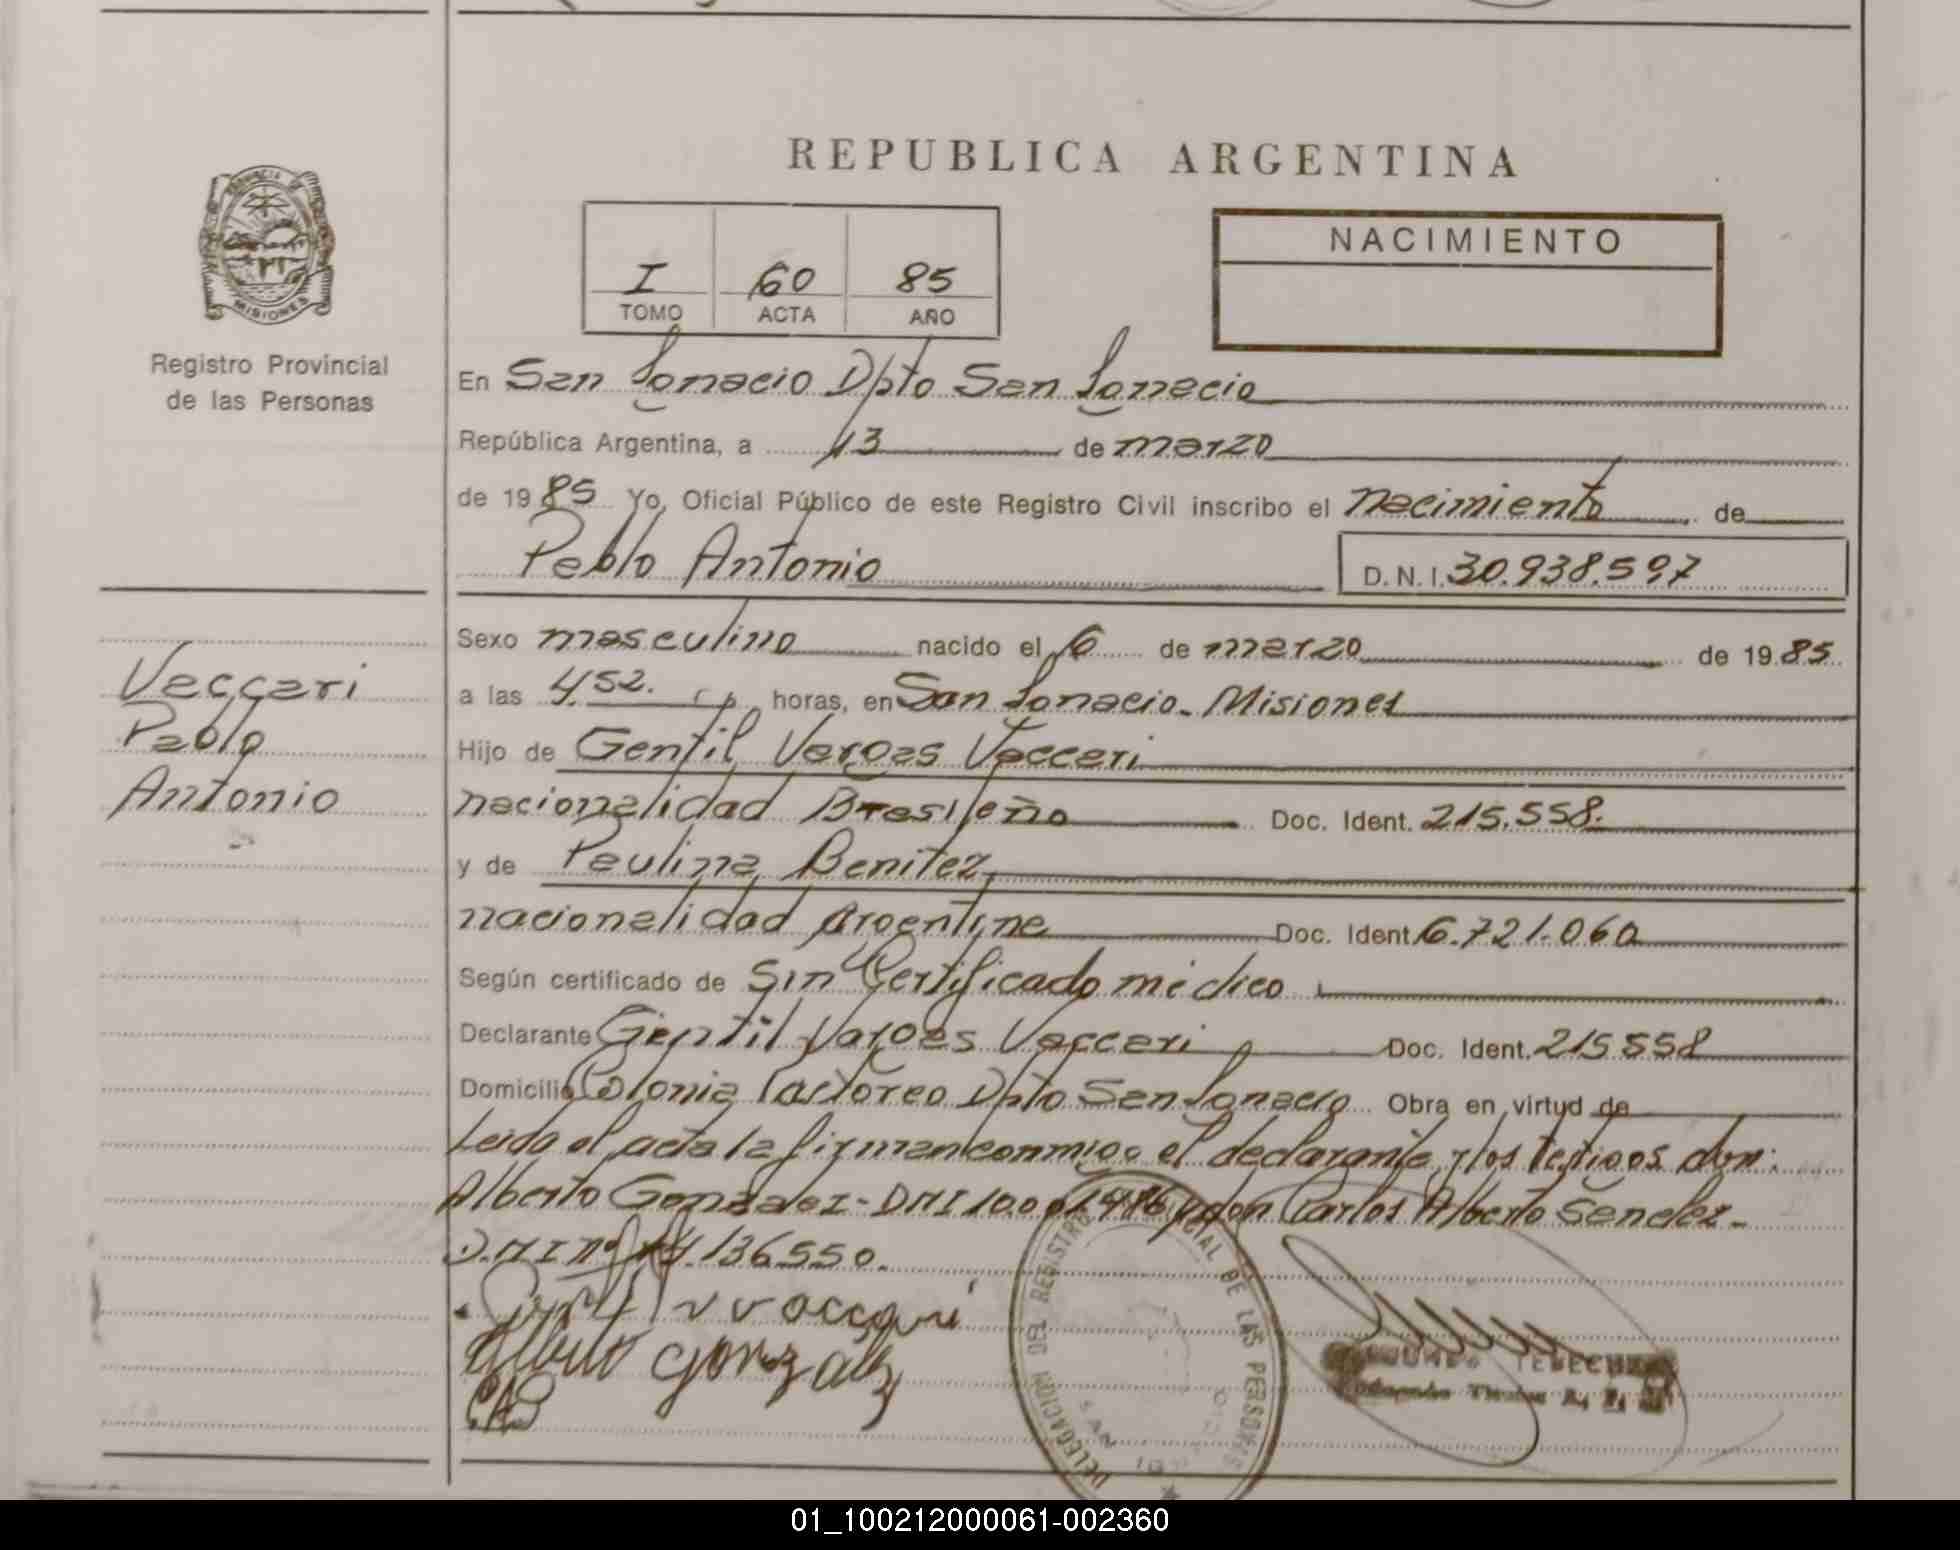 REPUBLICA ARGENTINA
PROVINCIA DE
MISIONES
Registro Provincial
de las Personas
I 60 85
TOMO ACTA AÑO
NACIMIENTO
En San Ignacio Dpto San Ignacio
República Argentina, a 13 de marzo
de 1985 Yo, Oficial Público de este Registro Civil inscribo el nacimiento de
Pablo Antonio D.N.I. 30.938.597
Vaccari
Pablo
Antonio
Sexo masculino nacido el 6 de marzo de 1985
a las 4,52. horas, en San Ignacio. Misiones
Hijo de Gentil Vargas Vaccari
nacionalidad Brasileño Doc. Ident. 215.558.
y de Paulina Benitez
nacionalidad Argentina Doc. Ident. 6.721.060
Según certificado de Sin Certificado médico
Declarante Gentil Vargas Vaccari Doc. Ident. 215558
Domicilio Colonia Pastoreo Dpto San Ignacio Obra en virtud de
Leida el acta la firman conmigo el declarante y los testigos don:
Alberto Gonzalez - DNI 10.001.486 y don Carlos Alberto
D.N.I nº 136550.
Alberto Gonzalez
DELEGACION DEL REGISTRO PROVINCIAL DE LAS PERSONAS
SAN IGNACIO
01_100212000061-002360